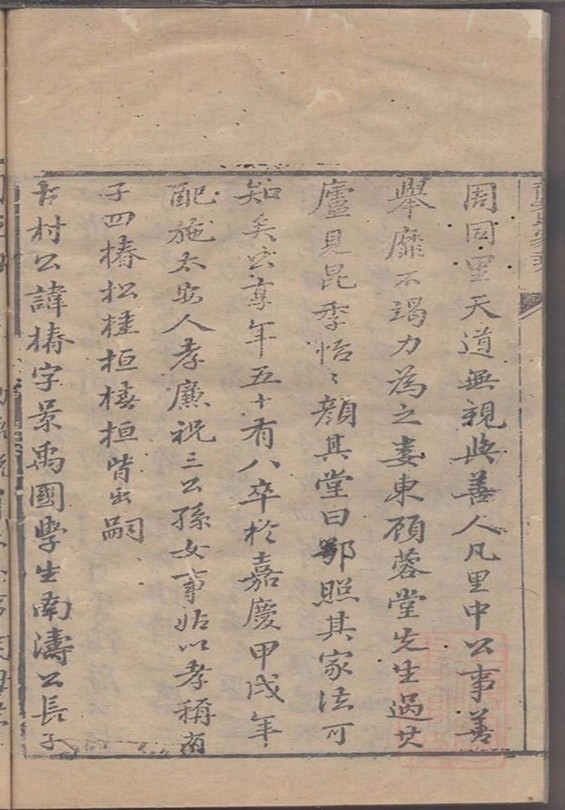 周回里天道無親與善人凡里中公事善
舉靡不竭力為之婁東顧蓉堂先生過其
廬見昆季怡〻顏其堂曰鄂照其家法可
知矣公享年五十有八卒於嘉慶甲戌年
配施太安人孝廉祝三公孫女事姑以孝稱有
子四椿松桂桓椿桓皆出嗣
古村公諱椿字景禹國學生南濤公長子